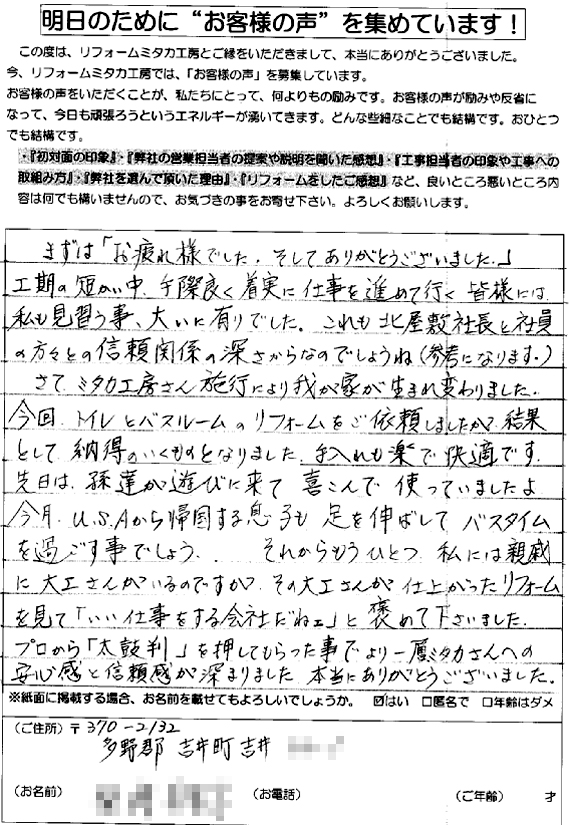 明日のために“お客様の声”を集めています！
この度は、リフォームミタカ工房とご縁をいただきまして、本当にありがとうございました。
今、リフォームミタカ工房では、「お客様の声」を募集しています。
お客様の声をいただくことが、私たちにとって、何よりもの励みです。お客様の声が励みや反省に
なって、今日も頑張ろうというエネルギーが湧いてきます。どんな些細なことでも結構です。おひとつ
でも結構です。
・『初対面の印象』・『弊社の営業担当者の提案や説明を聞いた感想』・『工事担当者の印象や工事への
取組み方』・『弊社を選んで頂いた理由』・『リフォームをしたご感想』など、良いところ悪いところ内
容は何でも構いませんので、お気づきの事をお寄せ下さい。よろしくお願いします。
まずは「お疲れ様でした。そしてありがとうございました。」
工期の短かい中、手際良く着実に仕事を進めて行く皆様には
私も見習う事、大いに有りでした。これも北屋敷社長と社員
の方々との信頼関係の深さからなのでしょうね（参考になります。）
さて、ミタカ工房さん施行により我が家が生まれ変わりました。
今回、トイレとバスルームのリフォームをご依頼しましたが、結果
として納得のいくものとなりました。手入れも楽で快適です。
先日は、孫達が遊びに来て喜こんで使っていましたよ
今月、U.S.Aから帰国する息子も足を伸ばしてバスタイム
を過ごす事でしょう．．それからもうひとつ、私には親戚
に大工さんがいるのですが、その大工さんが仕上がったリフォーム
を見て「いい仕事をする会社だねェ」と褒めて下さいました。
プロから「太鼓判」を押してもらった事でより一層ミタカさんへの
安心感と信頼感が深まりました。本当にありがとうございました。
※紙面に掲載する場合、お名前を載せてもよろしいでしょうか。 ☑はい □匿名で □年齢はダメ
（ご住所）〒370-2132
多野郡 吉井町 吉井
（お名前） （お電話） （ご年齢） 才